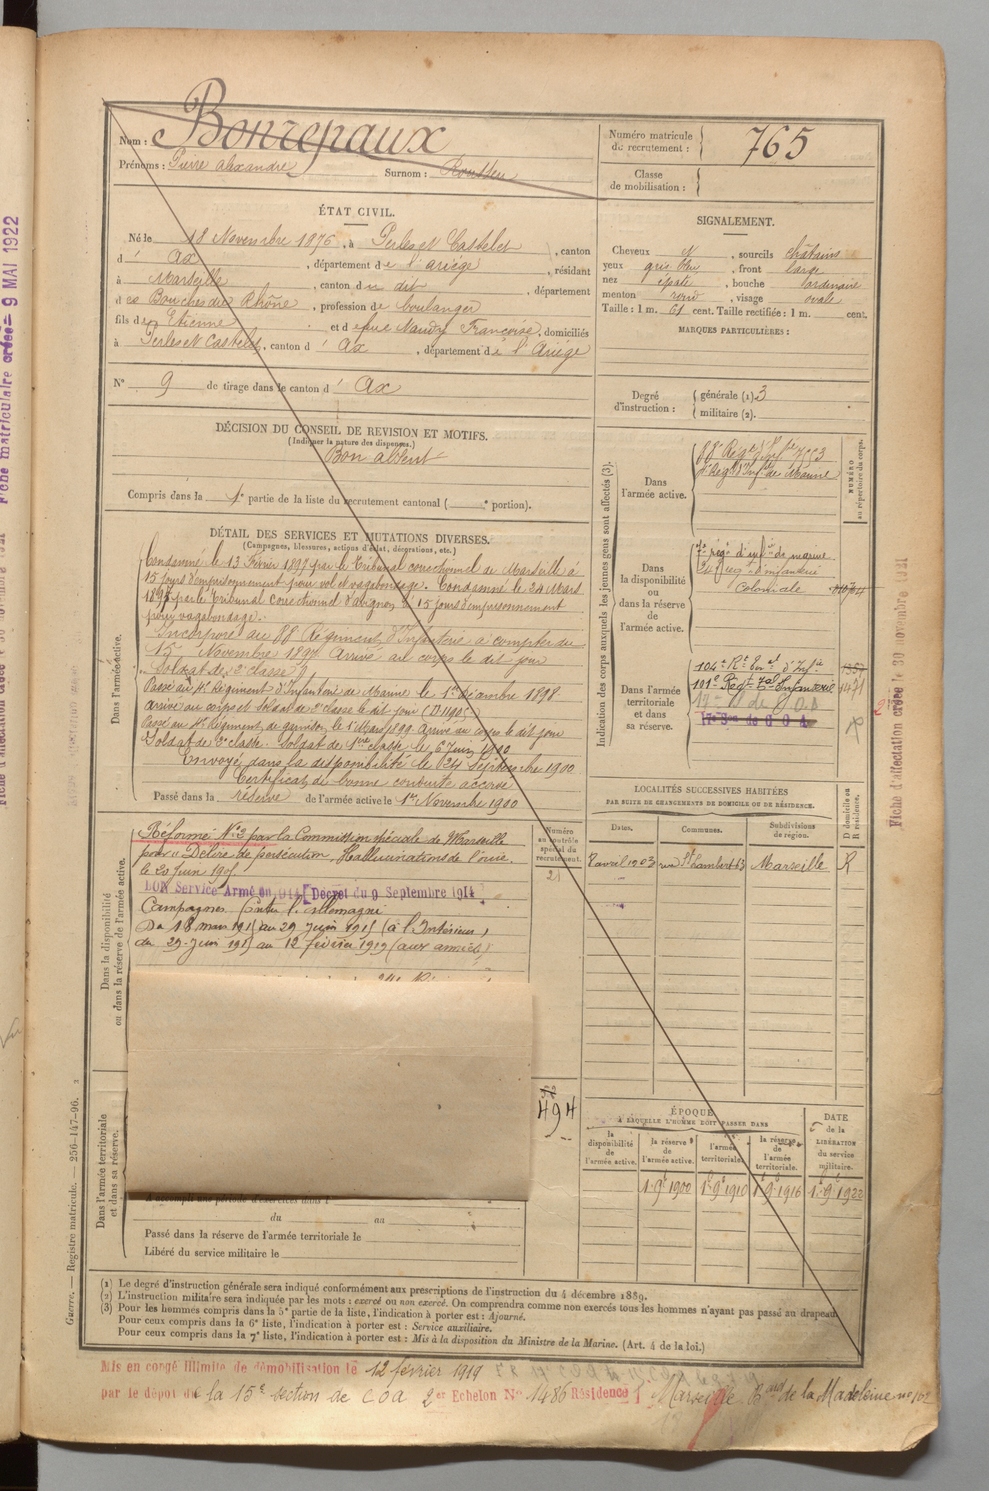 Nom : Bonrepaux
Prénoms : Pierre Alexandre Surnom : Rousseu
Numéro matricule de recrutement : 765
Classe de mobilisation :
ÉTAT CIVIL.
Né le 18 Novembre 1876, à Perles et Castelet, canton
d' Ax, département de l'Ariège, résidant
à Marseille, canton du dit, département
des Bouches du Rhône, profession de boulanger
fils de Etienne et de feue Naudy Françoise, domiciliés
à Perles et Castelet, canton d' Ax, département de l'Ariège
N° 9 de tirage dans le canton d' Ax
SIGNALEMENT.
Cheveux N, sourcils châtains
yeux gris bleu, front large
nez épaté, bouche ordinaire
menton rond, visage ovale
Taille : 1 m. 61 cent. Taille rectifiée : 1 m. cent.
MARQUES PARTICULIÈRES :
Degré d'instruction : générale (1) 3
militaire (2).
DÉCISION DU CONSEIL DE REVISION ET MOTIFS.
(Indiquer la nature des dispenses.)
Bon absent
Compris dans la 1e partie de la liste du recrutement cantonal ( e portion).
DÉTAIL DES SERVICES ET MUTATIONS DIVERSES.
(Campagnes, blessures, actions d'éclat, décorations, etc.)
Dans l'armée active.
Condamné le 13 Février 1897 par le Tribunal correctionnel de Marseille à
15 jours d'emprisonnement pour vol et vagabondage. Condamné le 24 Mars
1897 par le Tribunal correctionnel d'Avignon à 15 jours d'emprisonnement
pour vagabondage.
Incorporé au 88 Régiment d'Infanterie à compter du
15 Novembre 1897 Arrivé au corps le dit jour
Soldat de 2e classe
Passé au 4e Régiment d'Infanterie de Marine le 1er Décembre 1898
arrivé au corps et soldat de 2e classe le dit jour
Passé au Régiment de garnison le 1er Mars 1899 Arrivé au corps le dit jour
Soldat de 2e classe. Soldat de 1ère classe le 6 Juin 1900
Envoyé dans la disponibilité le 24 Septembre 1900
Certificat de bonne conduite accordé
Passé dans la réserve de l'armée active le 1er Novembre 1900
Indication des corps auxquels les jeunes gens sont affectés (3).
NUMÉRO au répertoire du corps.
Dans l'armée active.
88e Régt d'Infie 7553
4e Régt d'Infie de Marine
Dans la disponibilité ou dans la réserve de l'armée active.
7e régt d'infie de marine
d'infanterie
Coloniale
Dans l'armée territoriale et dans sa réserve.
104e Rt d'Infie
17e Son de C O A
LOCALITÉS SUCCESSIVES HABITÉES
PAR SUITE DE CHANGEMENTS DE DOMICILE OU DE RÉSIDENCE.
Dates. Communes. Subdivisions de région. D domicile ou R résidence.
8 avril 1903 rue St Lambert 43 Marseille R
Dans la disponibilité ou dans la réserve de l'armée active.
Numéro au contrôle spécial du recrutement.
Réformé N° 2 par la Commission spéciale de Marseille
pour « Délire de persécution, Hallucinations de l'ouïe.
le 20 juin 1905
BON Service Armé Décret du 9 Septembre 1914
Campagnes Contre l'Allemagne
Du 18 mars 1915 au 29 Juin 1915 (à l'Intérieur)
du 29 Juin 1915 au 12 février 1919 (aux armées)
494
Dans l'armée territoriale et dans sa réserve.
A accompli une période d'exercices dans l
du au
Passé dans la réserve de l'armée territoriale le
Libéré du service militaire le
ÉPOQUE
A LAQUELLE L'HOMME DOIT PASSER DANS
la disponibilité de l'armée active. la réserve de l'armée active. l'armée territoriale. la réserve de l'armée territoriale.
DATE de la LIBÉRATION du service militaire.
1.9e 1900 1.9e 1910 1.9e 1916 1.9e 1922
(1) Le degré d'instruction générale sera indiqué conformément aux prescriptions de l'instruction du 4 décembre 1889.
(2) L'instruction militaire sera indiquée par les mots : exercé ou non exercé. On comprendra comme non exercés tous les hommes n'ayant pas passé au drapeau.
(3) Pour les hommes compris dans la 5e partie de la liste, l'indication à porter est : Ajourné.
Pour ceux compris dans la 6e liste, l'indication à porter est : Service auxiliaire.
Pour ceux compris dans la 7e liste, l'indication à porter est : Mis à la disposition du Ministre de la Marine. (Art. 4 de la loi.)
Mis en congé illimité de démobilisation le 12 février 1919
par le dépôt de la 15e section de C O A 2er Echelon N° 1486 Résidence Marseille Bard de la Madeleine n° 102
Guerre. — Registre matricule. — 256-147-96.
Fiche matriculaire créée 9 MAI 1922
Fiche d'affectation créée le 30 novembre 1921